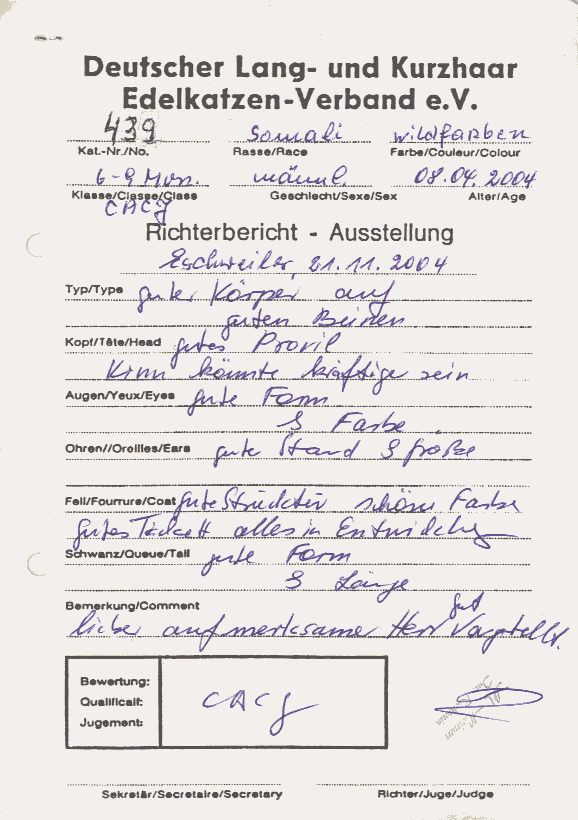 Deutscher Lang- und Kurzhaar
Edelkatzen-Verband e.V.
439 Somali wildfarben
Kat.-Nr./No. Rasse/Race Farbe/Couleur/Colour
6-9 Mon. männl. 08.04.2004
Klasse/Classe/Class Geschlecht/Sexe/Sex Alter/Age
CACJ
Richterbericht - Ausstellung
Eschweiler, 21.11.2004
Typ/Type guter Körper auf
guten Beinen
Kopf/Tête/Head gutes Provil
Kinn könnte kräftige sein
Augen/Yeux/Eyes gute Form
& Farbe
Ohren//Oreilles/Ears gute Stand & Große
Fell/Fourrure/Coat gute Strucktur schöne Farbe
gutes Tickett alles in Entwicklung
Schwanz/Queue/Tail gute Form
& Länge
Bemerkung/Comment gut
lieber aufmerksamer Herr
Bewertung:
Qualificatif: CACJ
Jugement:
Sekretär/Secretaire/Secretary Richter/Juge/Judge